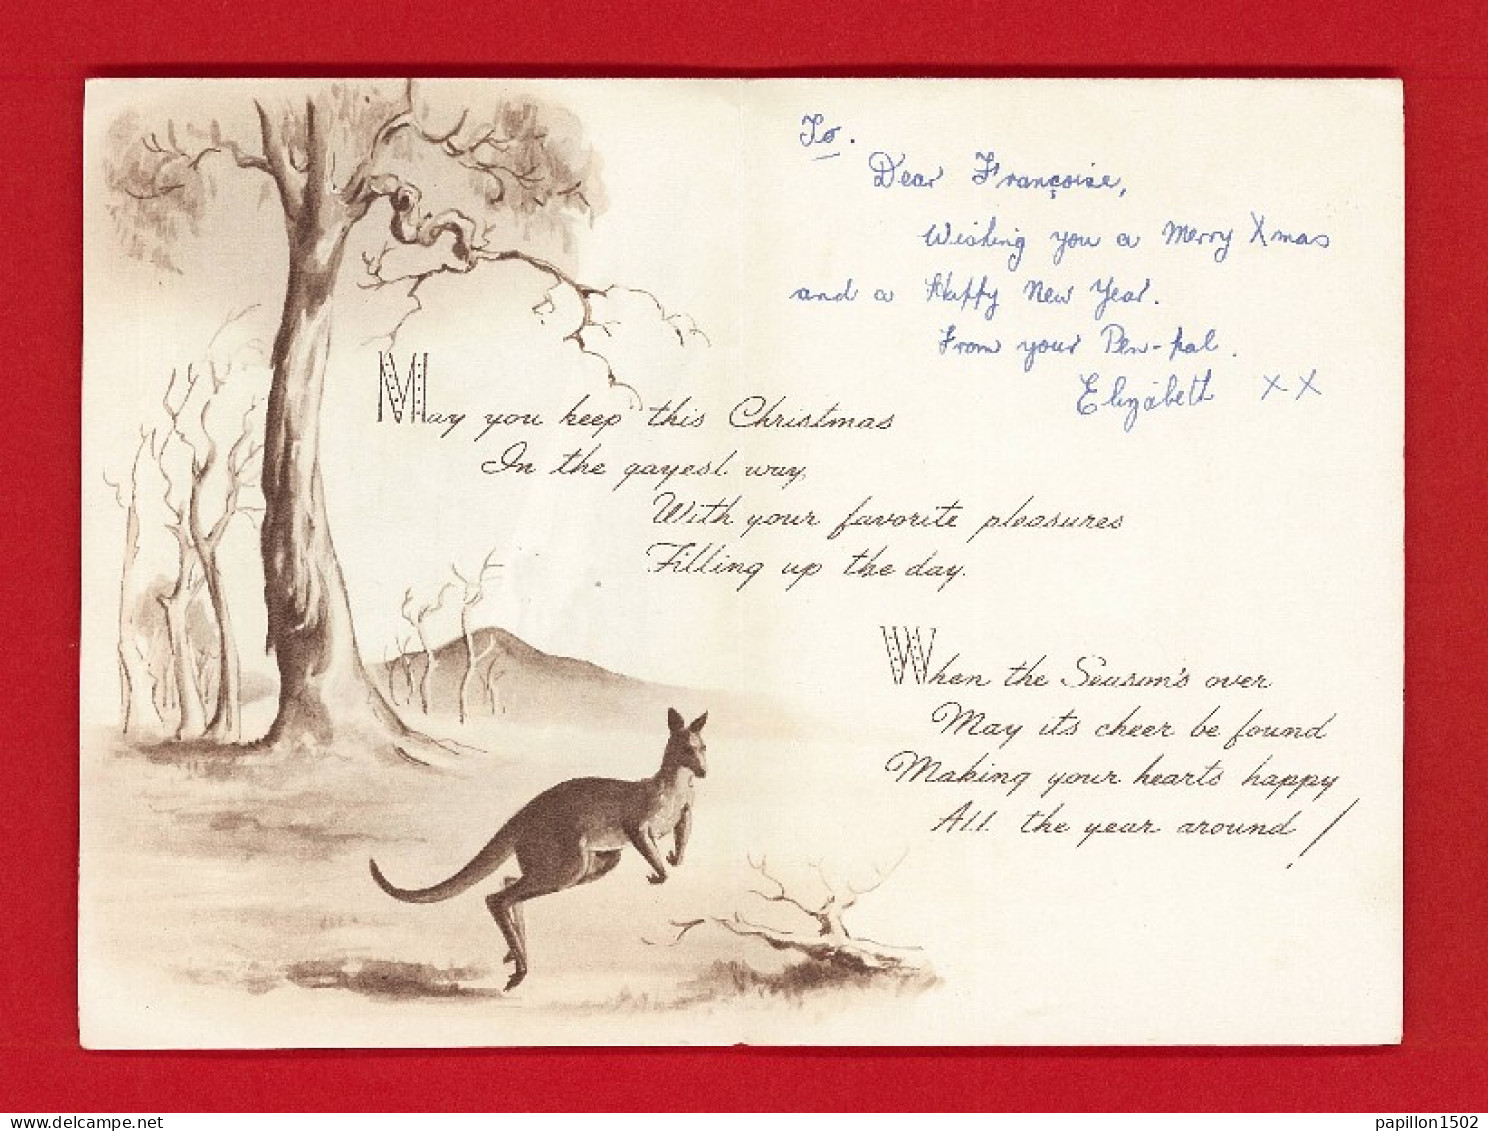 To.
Dear Françoise,
Wishing you a Merry Xmas
and a Happy New Year.
From your Pen-pal.
Elizabeth X X
May you keep this Christmas
In the gayest way,
With your favorite pleasures
Filling up the day.
When the Season's over
May its cheer be found
Making your hearts happy
All the year around!
papillon1502